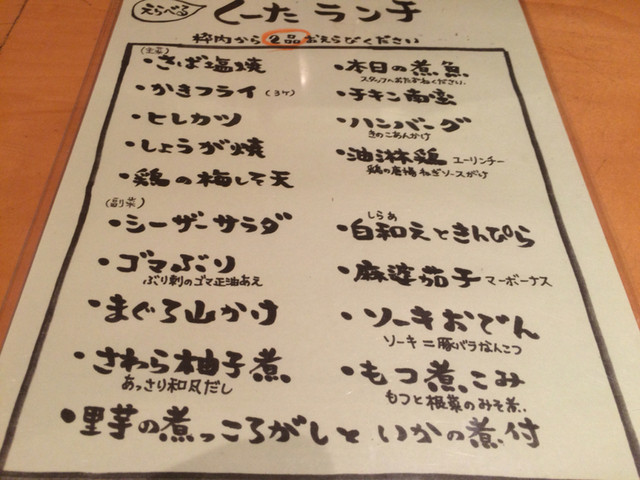 えらべる
くーた ランチ
枠内から2品おえらびください
(主菜)
・さば塩焼
・かきフライ (3ケ)
・ヒレカツ
・しょうが焼
・鶏の梅しそ天
・本日の煮魚
スタッフへおたずねください。
・チキン南蛮
・ハンバーグ
きのこあんかけ
・油淋鶏 ユーリンチー
鶏の唐揚ねぎソースがけ
(副菜)
・シーザーサラダ
・ゴマぶり
ぶり刺のゴマ正油あえ
・まぐろ山かけ
・さわら柚子煮
あっさり和風だし
しらあ
・白和えときんぴら
・麻婆茄子 マーボーナス
・ソーキおでん
ソーキ=豚バラなんこつ
・もつ煮こみ
もつと根菜のみそ煮。
・里芋の煮っころがしと いかの煮付